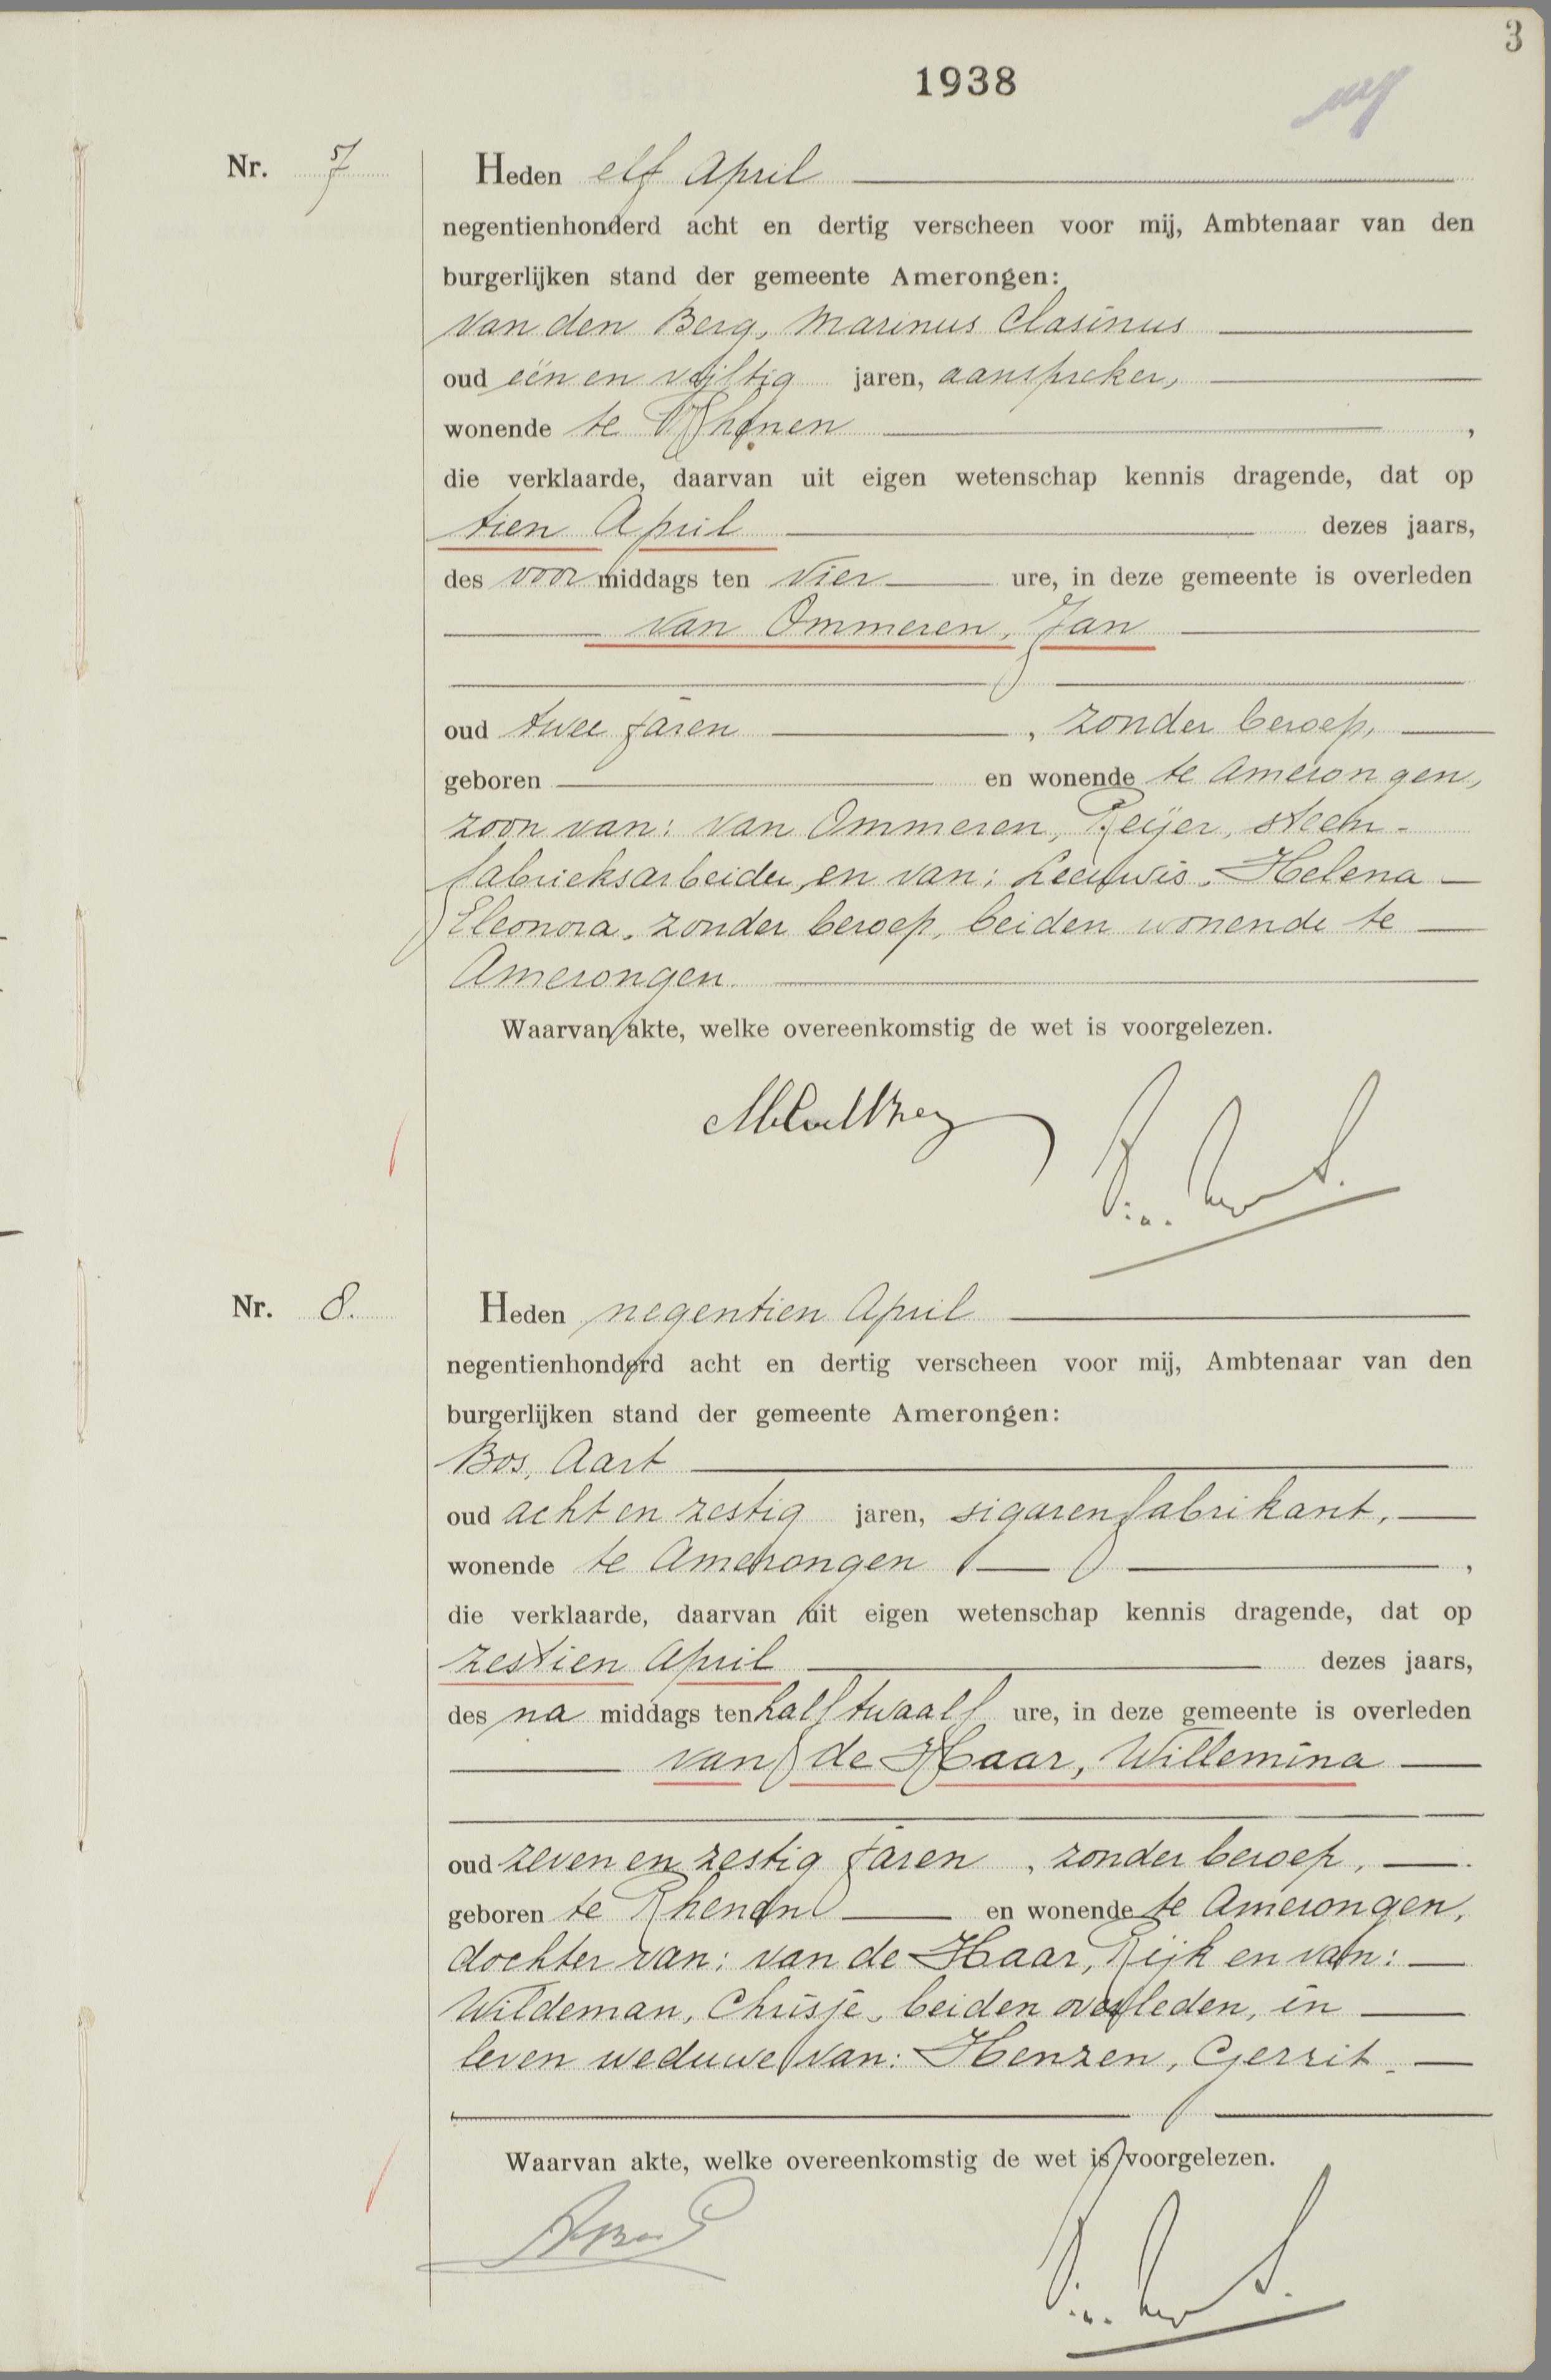 3
1938
Nr. 7
Heden elf April
negentienhonderd acht en dertig verscheen voor mij, Ambtenaar van den
burgerlijken stand der gemeente Amerongen:
van den Berg, Marinus Clasinus
oud één en vijftig jaren, aanspreker,
wonende te Rhenen ,
die verklaarde, daarvan uit eigen wetenschap kennis dragende, dat op
tien April dezes jaars,
des voor middags ten vier ure, in deze gemeente is overleden
van Ommeren, Jan
oud twee jaren , zonder beroep,
geboren en wonende te Amerongen,
zoon van: van Ommeren, Reijer, steen-
fabrieksarbeider, en van: Leeuwis, Helena
Eleonora, zonder beroep, beiden wonende te
Amerongen.
Waarvan akte, welke overeenkomstig de wet is voorgelezen.
Nr. 8.
Heden negentien April
negentienhonderd acht en dertig verscheen voor mij, Ambtenaar van den
burgerlijken stand der gemeente Amerongen:
Bos, Aart
oud acht en zestig jaren, sigarenfabrikant,
wonende te Amerongen ,
die verklaarde, daarvan uit eigen wetenschap kennis dragende, dat op
zestien April dezes jaars,
des na middags ten half twaalf ure, in deze gemeente is overleden
van de Haar, Willemina
oud zeven en zestig jaren , zonder beroep,
geboren te Rhenen en wonende te Amerongen,
dochter van: van de Haar, Rijk en van:
Wildeman, Chrisje, beiden overleden, in
leven weduwe van: Henzen, Gerrit.
Waarvan akte, welke overeenkomstig de wet is voorgelezen.